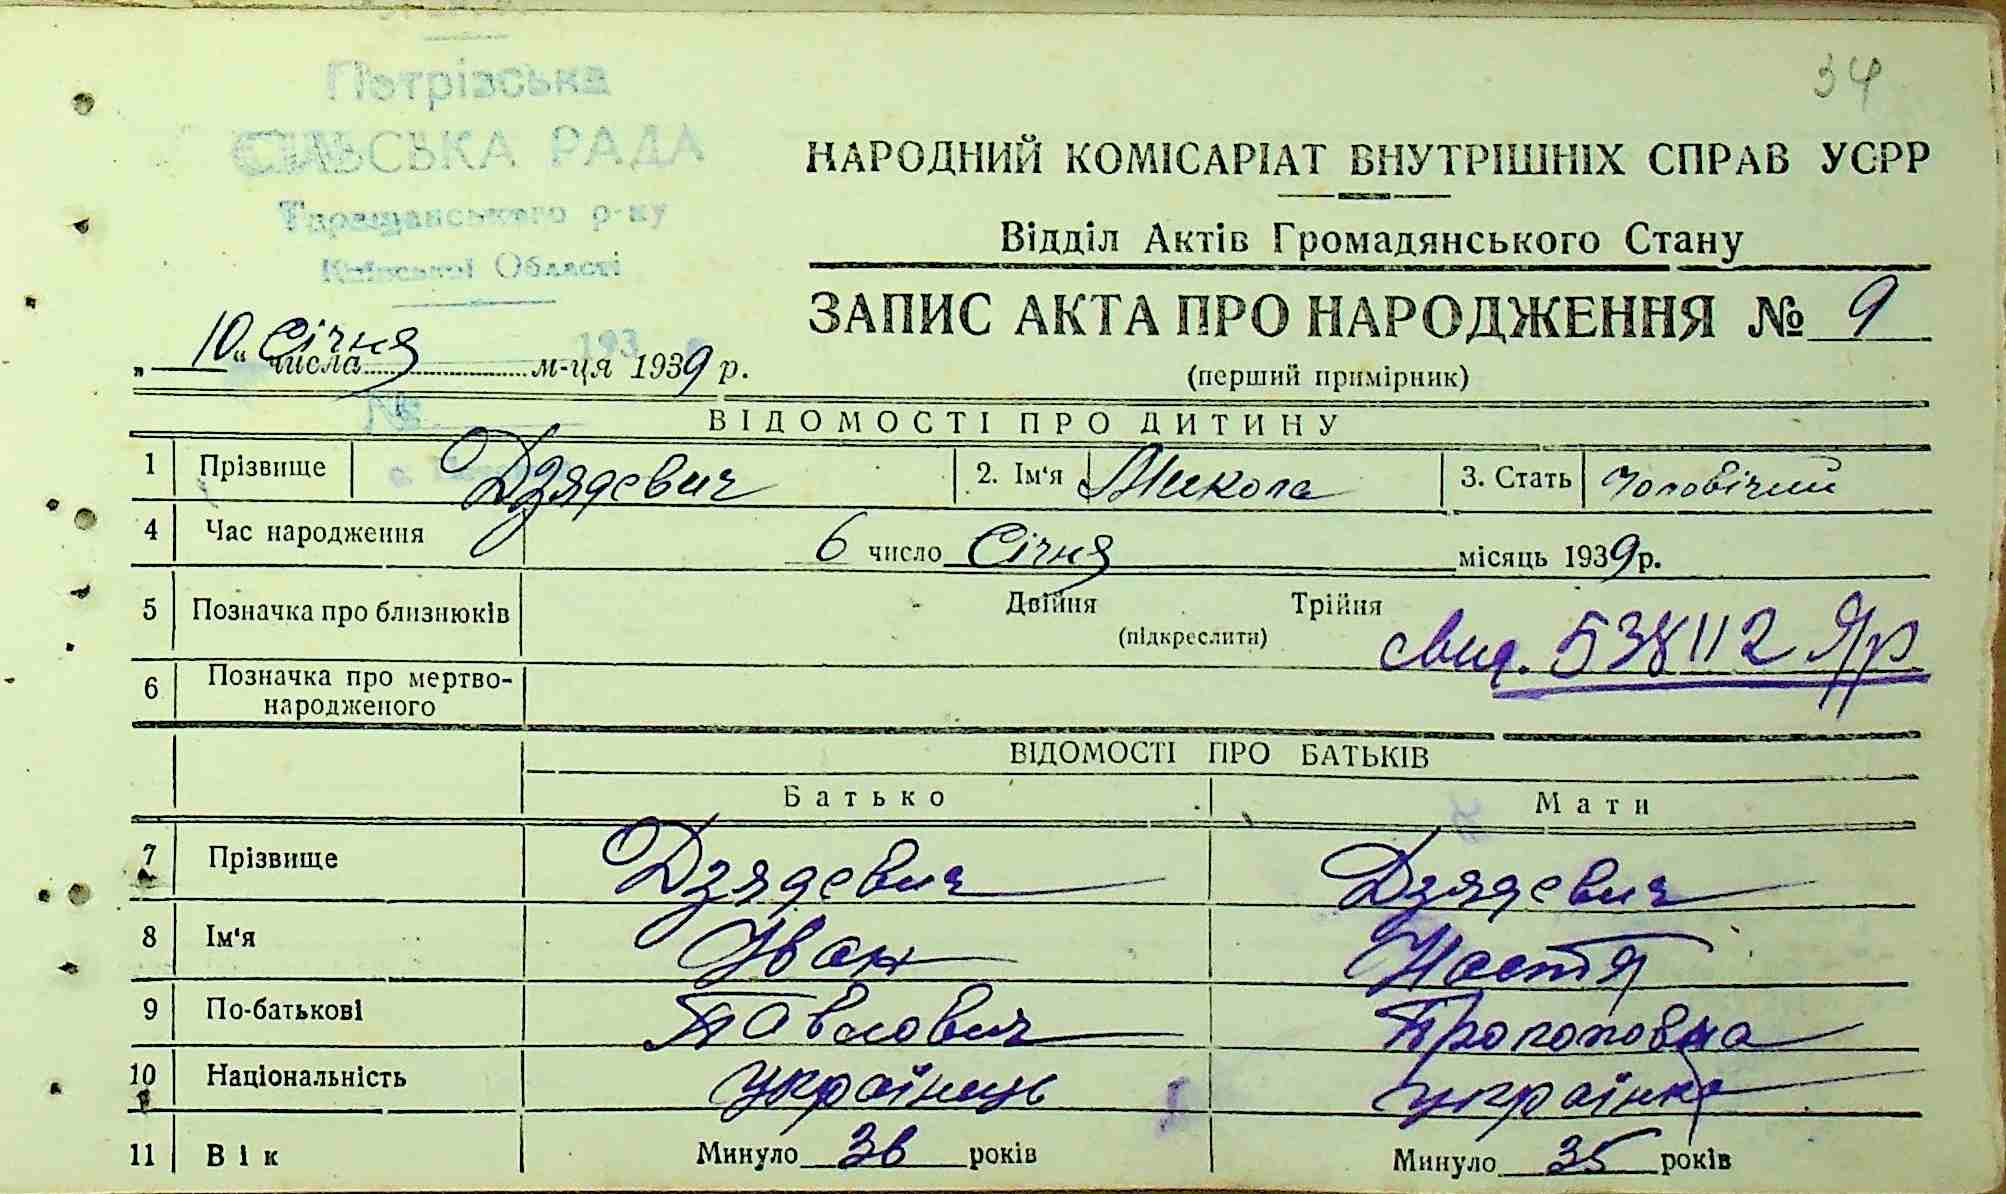 34
Петрівська
СІЛЬСЬКА РАДА
Таращанського р-ну
Київської Області
193 р.
№
НАРОДНИЙ КОМІСАРІАТ ВНУТРІШНІХ СПРАВ УСРР
Відділ Актів Громадянського Стану
ЗАПИС АКТА ПРО НАРОДЖЕННЯ № 9
(перший примірник)
„ 10 “ числа Січня м-ця 1939 р.
ВІДОМОСТІ ПРО ДИТИНУ
1 Прізвище Дзядевич 2. Ім'я Микола 3. Стать Чоловічий
4 Час народження 6 число Січня місяць 1939 р.
5 Позначка про близнюків Двійня Трійня
(підкреслити)
свид. 538112 Яр
6 Позначка про мертво-
народженого
ВІДОМОСТІ ПРО БАТЬКІВ
Батько Мати
7 Прізвище Дзядевич Дзядевич
8 Ім'я Іван Настя
9 По-батькові Павлович Прокоповна
10 Національність українець українка
11 Вік Минуло 36 років Минуло 35 років